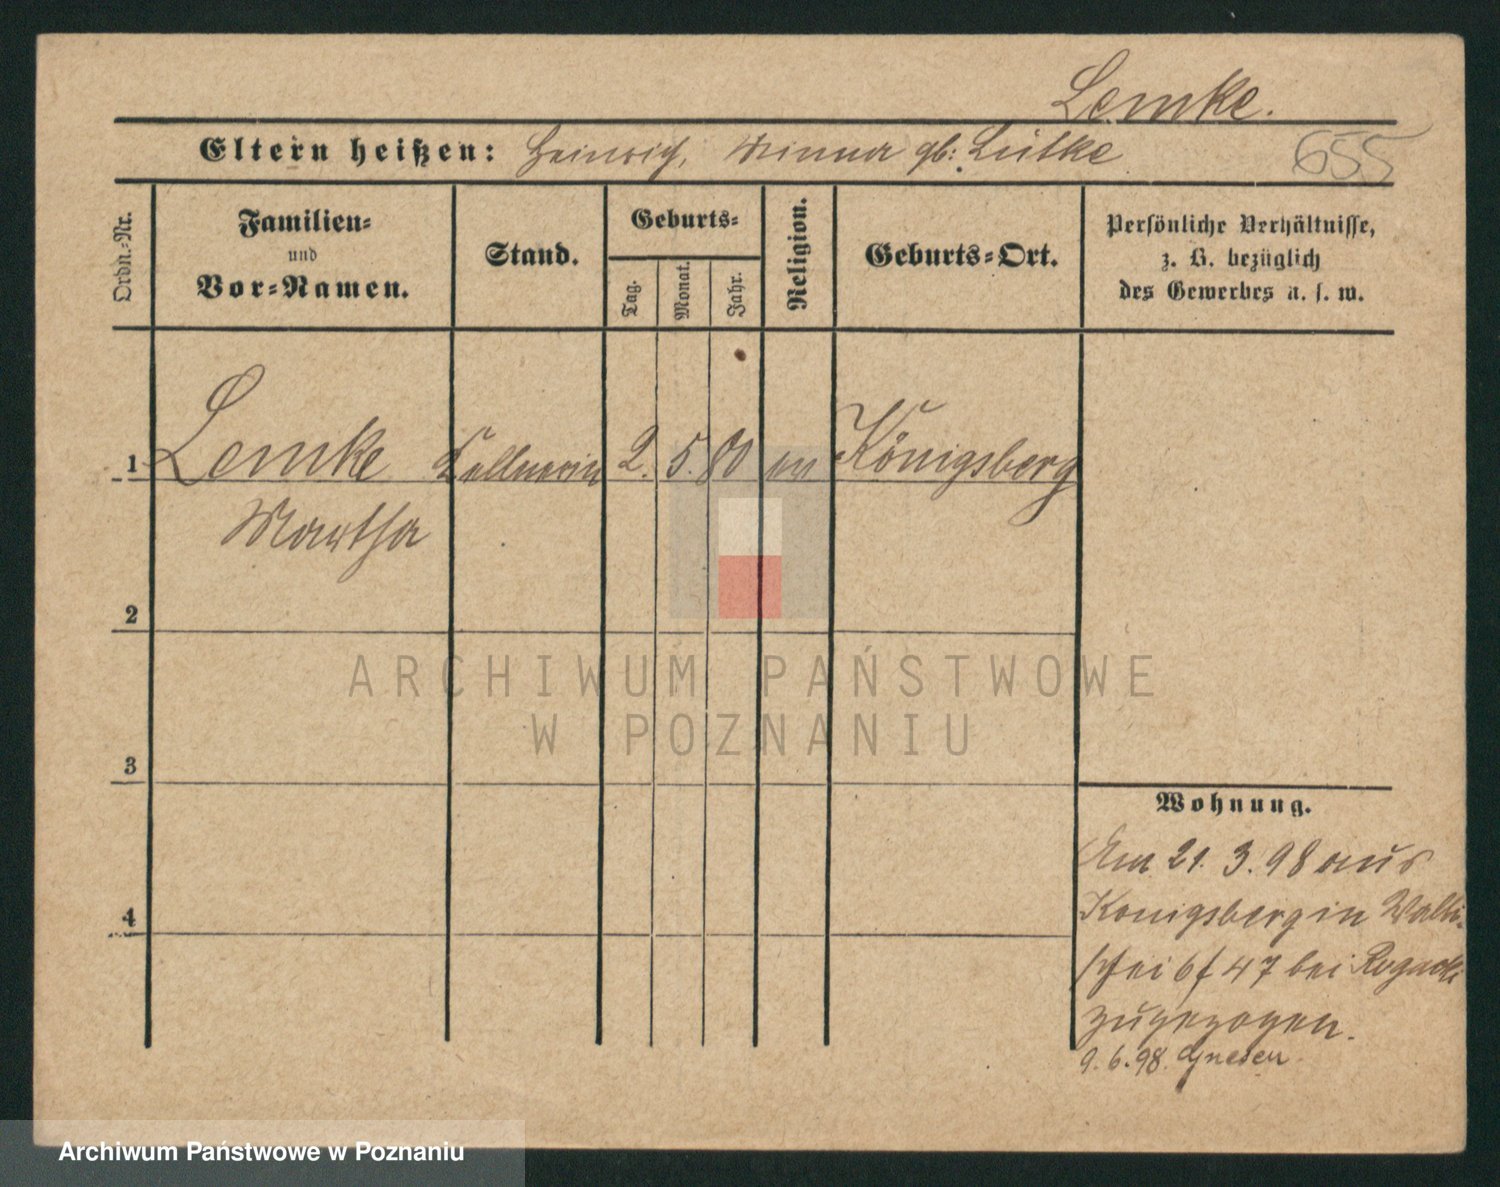 Lemke.
Eltern heißen: Heinrich, Minna gb: Lütke
655
Ordn.-Nr.
Familien-
und
Vor-Namen.
Stand.
Geburts-
Tag.
Monat.
Jahr.
Religion.
Geburts-Ort.
Persönliche Verhältnisse,
z. B. bezüglich
des Gewerbes u. s. w.
1 Lemke Kellnerin 2. 5. 80 ev Königsberg
Martha
2
3
4
ARCHIWUM PAŃSTWOWE
W POZNANIU
Wohnung.
Am 21. 3. 98 aus
Konigsberg in Walli-
schei 47 bei Rogacki
zugezogen.
9. 6. 98. Gnesen.
Archiwum Państwowe w Poznaniu